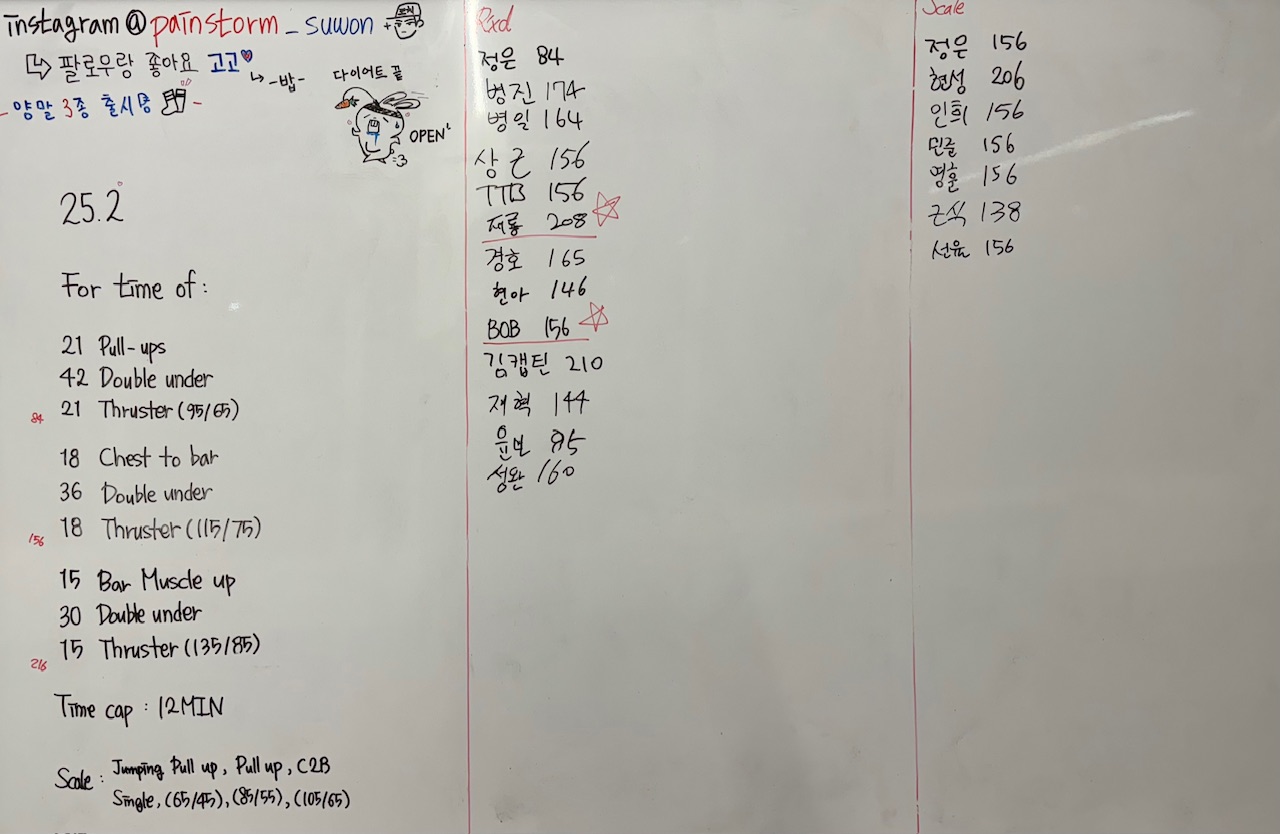 instagram@painstorm_suwon
팔로우랑 좋아요 고고
-밥-
다이어트 끝
- 양말 3종 출시중 -
OPEN
25.2
For time of:
21 Pull-ups
42 Double under
84 21 Thruster (95/65)
18 Chest to bar
36 Double under
156 18 Thruster (115/75)
15 Bar Muscle up
30 Double under
216 15 Thruster (135/85)
Time cap : 12MIN
Scale : Jumping Pull up, Pull up, C2B
Single, (65/45), (85/55), (105/65)
Rxd
정은 84
병진 174
병일 164
상근 156
TTB 156
재룡 208
경호 165
현아 146
BOB 156
김캡틴 210
재혁 144
윤보
성완 160
Scale
정은 156
현성 206
인희 156
민준 156
영훈 156
근식 138
선율 156